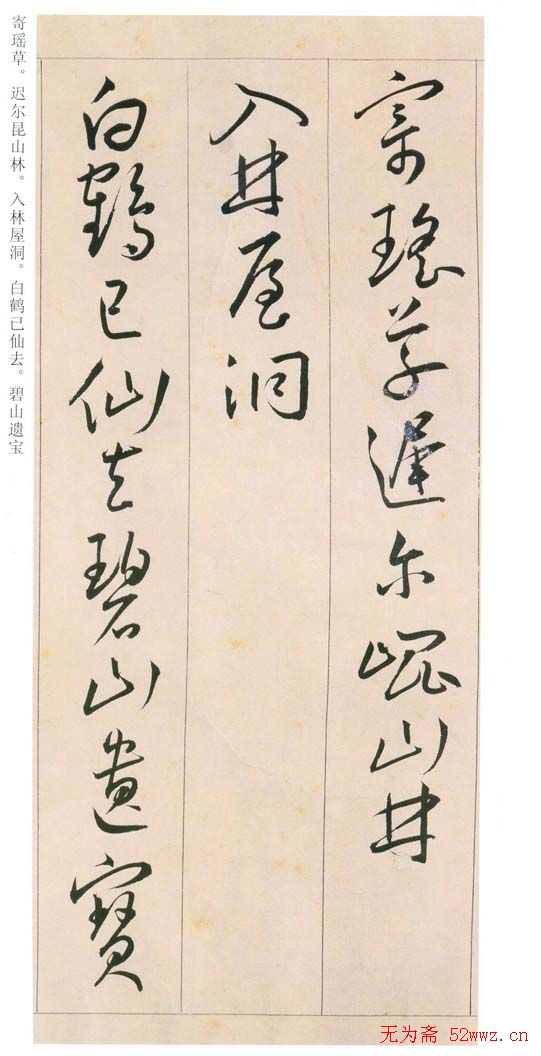 寄瑶草迟尔崐山林
入林屋洞
白鹤已仙去碧山遗寳
寄瑶草。迟尔昆山林。入林屋洞。白鹤已仙去。碧山遗宝
无为斋 52wwz.cn